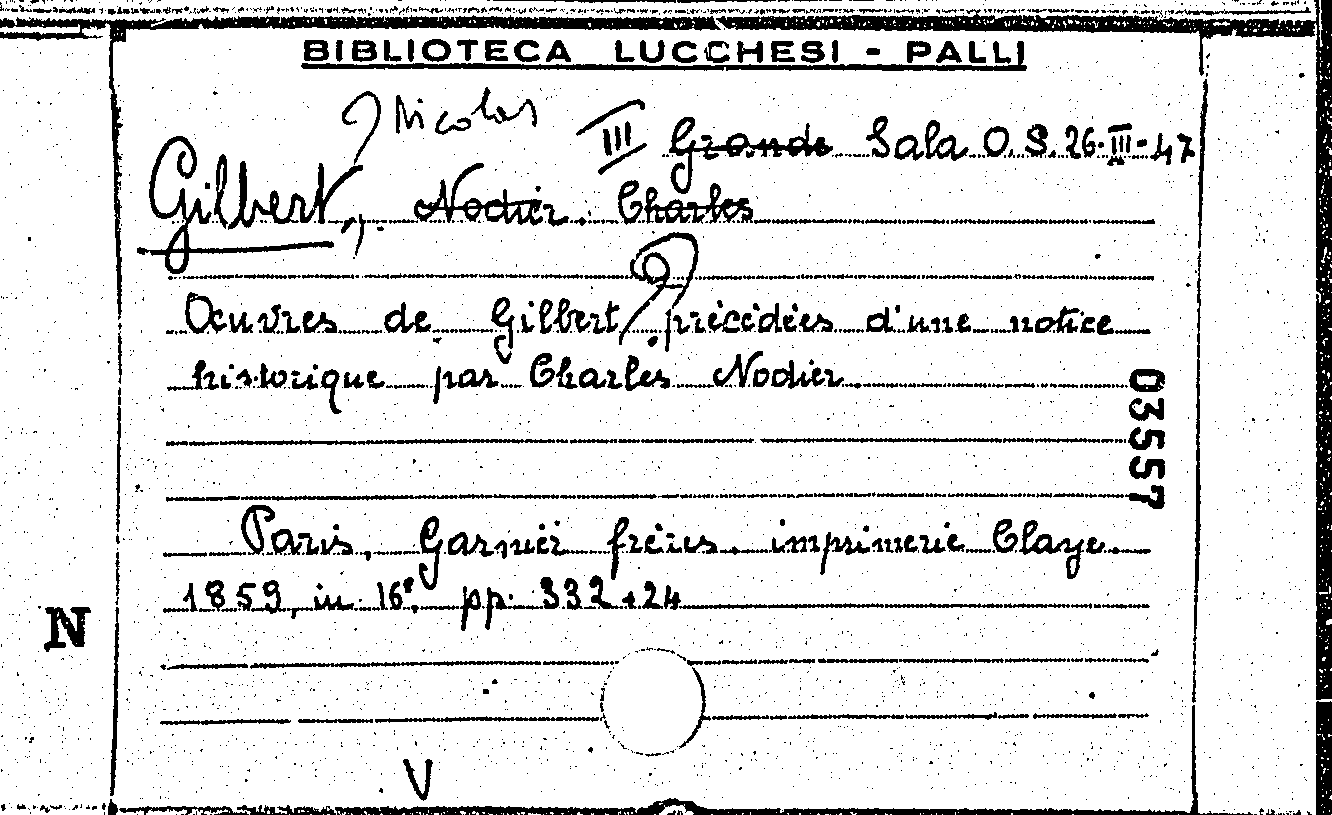 BIBLIOTECA LUCCHESI - PALLI
Nicolas
III Grande Sala O. S. 26-III-47
Gilbert, Nodier. Charles
Oeuvres de Gilbert précédées d'une notice
historique par Charles Nodier.
03557
Paris, Garnier frères. imprimerie Claye.
1859, in 16°. pp. 332+24
N
V